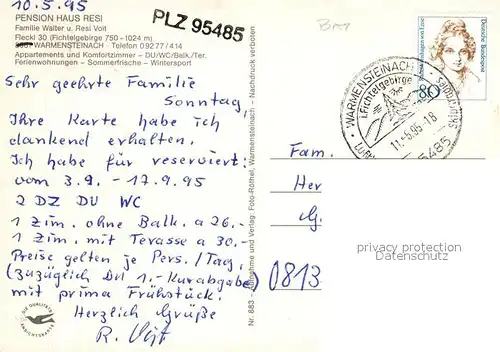 10.5.95
PENSION HAUS RESI
Familie Walter u. Resi Voit
Fleckl 30 (Fichtelgebirge 750 - 1024 m)
WARMENSTEINACH · Telefon 0 92 77 / 414
Appartements und Komfortzimmer – DU/WC/Balk./Ter.
Ferienwohnungen – Sommerfrische – Wintersport
PLZ 95485
Sehr geehrte Familie
Sonntag,
Ihre Karte habe ich
dankend erhalten.
Ich habe für reserviert:
vom 3.9. - 17.9.95
2 DZ DU WC
1 Zim. ohne Balk. a 26.-
1 Zim. mit Terasse a 30.-
Preise gelten je Pers./Tag,
(zuzüglich DU 1.- Kurabgabe)
mit prima Frühstück.
Herzlich Grüße
R. Voit
DIE QUALITÄTS
ANSICHTSKARTE
Nr. 883 - Aufnahme und Verlag: Foto-Röthel, Warmensteinach - Nachdruck verboten
Deutsche Bundespost
80
WARMENSTEINACH
i. Fichtelgebirge
11.-5.95-18
95485
Fam.
Her
G.
0813
privacy protection
Datenschutz